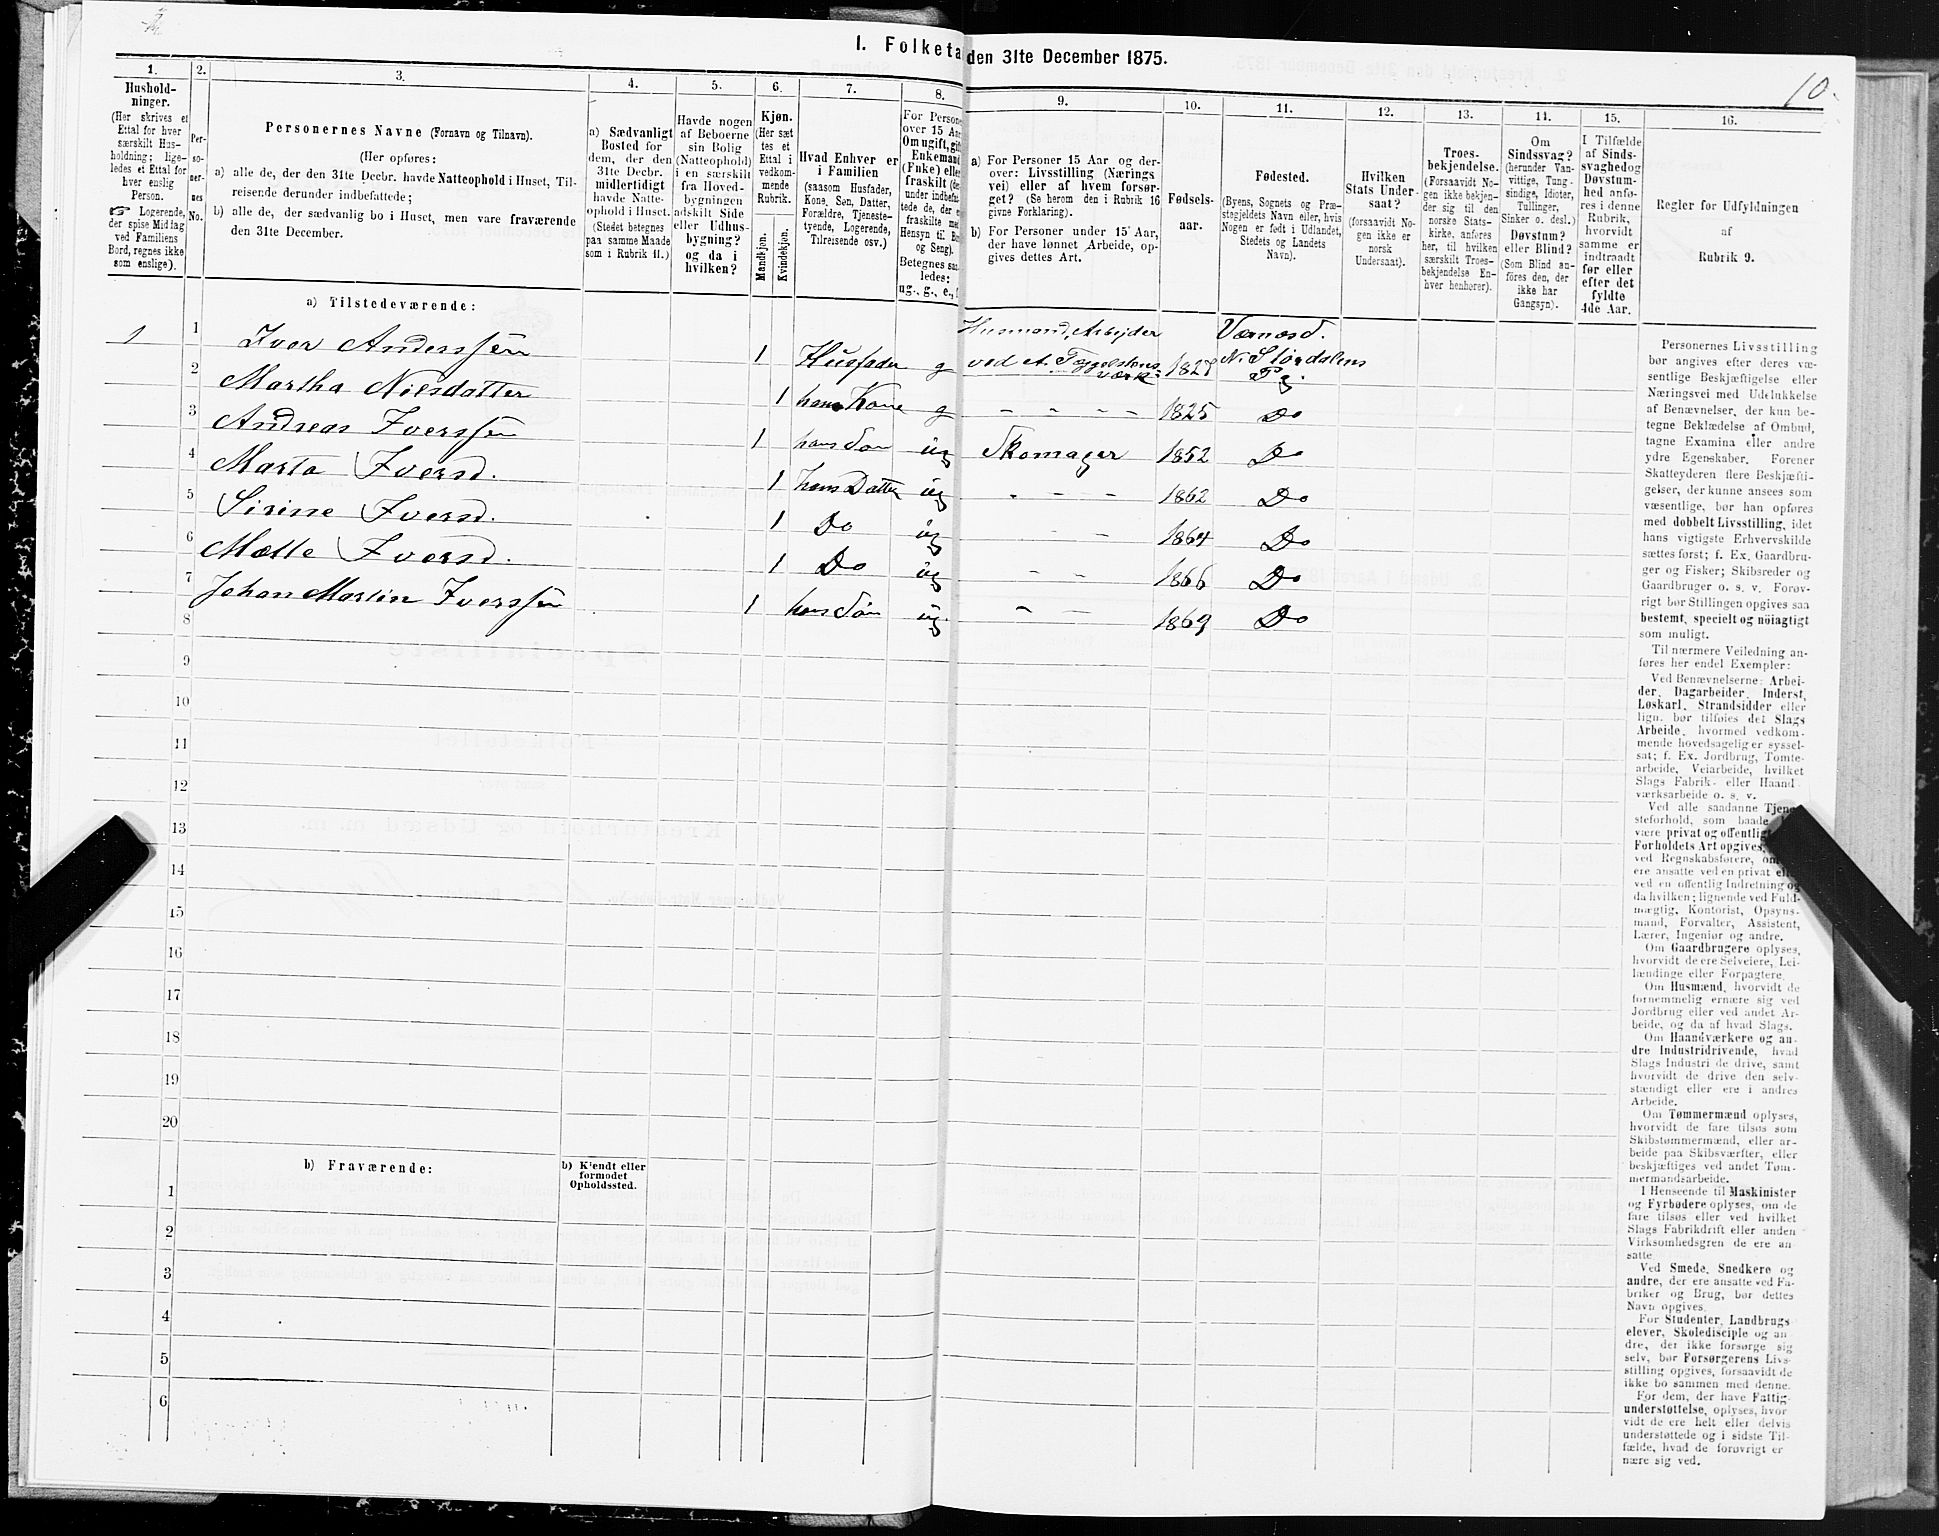 I. Folketa den 31te December 1875.
10.
1. 2. 3. 4. 5. 6. 7. 8. 9. 10. 11. 12. 13. 14. 15. 16.
Hushold-
ninger.
(Her skrives et
Ettal for hver
særskilt Hus-
holdning; lige-
ledes et Ettal for
hver enslig
Person.
☞ Logerende,
der spise Middag
ved Familiens
Bord, regnes ikke
som enslige).
Per-
so-
ner-
nes
No.
Personernes Navne (Fornavn og Tilnavn).
(Her opføres:
a) alle de, der den 31te Decbr. havde Natteophold i Huset, Til-
reisende derunder indbefattede;
b) alle de, der sædvanlig bo i Huset, men vare fraværende
den 31te December.
a) Sædvanligt
Bosted for
dem, der den
31te Decbr.
midlertidigt
havde Natte-
ophold i Huset.
(Stedet betegnes
paa samme Maade
som i Rubrik 11.)
Havde nogen
af Beboerne
sin Bolig
(Natteophold)
i en særskilt
fra Hoved-
bygningen
adskilt Side
eller Udhus-
bygning?
og da i
hvilken?
Kjøn.
(Her sæt
tes et
Ettal i
vedkom-
mende
Rubrik.
Mandkjøn.
Kvindekjøn.
Hvad Enhver er
i Familien
(saasom Husfader,
Kone, Søn, Datter,
Forældre, Tjeneste-
tyende, Logerende,
Tilreisende osv.)
For Persone
over 15 Aar
Om ugift, gift
Enkemand
(Enke) elle
fraskilt (de
under indbefat
tede de, der e
fraskilte me
Hensyn til Bo
og Seng).
Betegnes saa
ledes:
ug., g., e., f
a) For Personer 15 Aar og der-
over: Livsstilling (Nærings
vei) eller af hvem forsør-
get? (Se herom den i Rubrik 16
givne Forklaring).
b) For Personer under 15 Aar,
der have lønnet Arbeide, op-
gives dettes Art.
Fødsels-
aar.
Fødested.
(Byens, Sognets og Præ-
stegjeldets Navn eller, hvis
Nogen er født i Udlandet,
Stedets og Landets
Navn).
Hvilken
Stats Under-
saat?
(forsaavidt No-
gen ikke er
norsk
Undersaat).
Troes-
bekjendelse.
(Forsaavidt No-
gen ikke bekjen-
der sig til den
norske Stats-
kirke, anføres
her, til hvilken
særskilt Troes-
bekjendelse En-
hver henhører).
Om
Sindssvag?
(herunder Van-
vittige, Tung-
sindige, Idioter,
Tullinger,
Sinker o. desl.)
Døvstum?
eller Blind?
(Som Blind an-
føres den, der
ikke har
Gangsyn).
I Tilfælde
af Sinds-
svaghed og
Døvstum-
hed anfø-
res i denne
Rubrik,
hvorvidt
samme er
indtraadt
før eller
efter det
fyldte
4de Aar.
Regler for Udfyldningen
af
Rubrik 9.
a) Tilstedeværende:
1 1 Iver Anderssen 1 Husfader g Husmand, Arbejder ved et Teggelstens værk 1827 Værnæs S. N. Størdalens Pg.
2 Martha Nilsdatter 1 hans Kone g - - - - 1825 Do
3 Andreas Iverssen 1 hans Søn ug Skomager 1852 Do
4 Marta Iversd. 1 hans Datter ug - - - 1862 Do
5 Sirine Iversd. 1 Do ug - - 1864 Do
6 Mætte Iversd. 1 Do ug - - 1866 Do
7 Johan Martin Iverssen 1 hans Søn ug - - 1869 Do
8
9
10
11
12
13
14
15
16
17
18
19
20
b) Fraværende:
b) Kjendt eller
formodet
Opholdssted.
1
2
3
4
5
6
Personernes Livsstilling
bør angives efter deres væ-
sentlige Beskjæftigelse eller
Næringsvei med Udelukkelse
af Benævnelser, der kun be-
tegne Beklædelse af Ombud,
tagne Examina eller andre
ydre Egenskaber. Forener
Skatteyderen flere Beskjæfti-
gelser, der kunne ansees som
væsentlige, bør han opføres
med dobbelt Livsstilling, idet
hans vigtigste Erhvervskilde
sættes først; f. Ex. Gaardbru-
ger og Fisker; Skibsreder og
Gaardbruger o. s. v. Forøv-
rigt bør Stillingen opgives saa
bestemt, specielt og nöiagtigt
som muligt.
Til nærmere Veiledning an-
føres her endel Exempler:
Ved Benævnelserne: Arbei-
der, Dagarbeider, Inderst,
Løskarl, Strandsidder eller
lign. bør tilføies det Slags
Arbeide, hvormed vedkom-
mende hovedsagelig er syssel-
sat; f. Ex. Jordbrug, Tomte-
arbeide, Veiarbeide, hvilket
Slags Fabrik- eller Haand
værksarbeide o. s. v.
Ved alle saadanne Tjene-
steforhold, som baade
være privat og offentligt
Forholdets Art opgives,
ved Regnskabsførere, om
ere ansatte ved en privat el
ved en offentlig Indretning og
da hvilken; lignende ved Fuld-
mægtig, Kontorist, Opsyns-
mand, Forvalter, Assistent,
Lærer, Ingeniør og andre.
Om Gaardbrugere oplyses,
hvorvidt de ere Selveiere, Lei-
lændinge eller Forpagtere.
Om Husmænd, hvorvidt de
fornemmelig ernære sig ved
Jordbrug eller ved andet Ar-
beide, og da af hvad Slags.
Om Haandværkere og an-
dre Industridrivende, hvad
Slags Industri de drive, samt
hvorvidt de drive den selv-
stændigt eller ere i andres
Arbeide.
Om Tømmermænd oplyses,
hvorvidt de fare tilsøs som
Skibstømmermænd, eller ar-
beide paa Skibsværfter, eller
beskjæftiges ved andet Tøm-
mermandsarbeide.
I Henseende til Maskinister
og Fyrbødere oplyses, om de
fare tilsøs eller ved hvilket
Slags Fabrikdrift eller anden
Virksomhedsgren de ere an-
satte.
Ved Smede, Snedkere og
andre, der ere ansatte ved Fa-
briker og Brug, bør dettes
Navn opgives.
For Studenter, Landbrugs
elever, Skoledisciple og an
dre, der ikke forsørge sig
selv, bør Forsørgerens Livs-
stilling opgives, forsaavidt de
ikke bo sammen med denne.
For dem, der have Fattig-
understøttelse, oplyses, hvor
vidt de ere helt eller delvis
understøttede og i sidste Til-
fælde, hvad de forøvrigt er
nære sig ved.